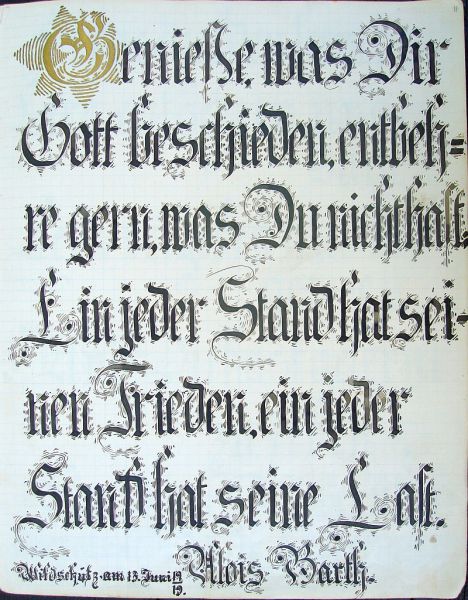 Genieße, was Dir
Gott beschieden, entbeh=
re gern, was Du nicht hast.
Ein jeder Stand hat sei-
nen Frieden, ein jeder
Stand hat seine Last.
Wildschütz am 13. Juni 19/19. Alois Barth.